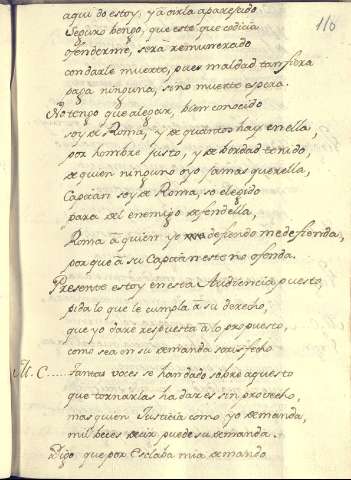 116
aqui do estoy, y à oirla aparejado
Seguro bengo, que este que codicia
ofenderme, sera remunerado
con darle muerte, pues maldad tan fiera
paga ninguna, sino muerte espera.
No tengo que alegar, bien conocido
soy de Roma, y de quantos hay en ella,
por hombre justo, y de bondad tenido,
de quien ninguno oyo jamas querella,
Capitan soy de Roma, so elegido
para del enemigo defendella,
Roma à quien yo defiendo me defienda,
por que à su Capitan este no ofenda.
Presente estoy en esta Audiencia puesto,
pida lo que le cumpla à su derecho,
que yo darè respuesta à lo propuesto,
como sea en su demanda satisfecho
M. C..... Tantas voces se han dado sobre aquesto
que tornarlas ha dar es sin probecho,
mas quien Justicia como yo demanda,
mil beces decir puede su demanda.
Digo que por Esclaba mia demando